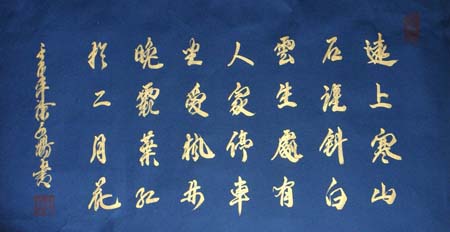 遠上寒山
石徑斜白
雲生處有
人家停車
坐愛楓林
晚霜葉紅
於二月花
年徐書